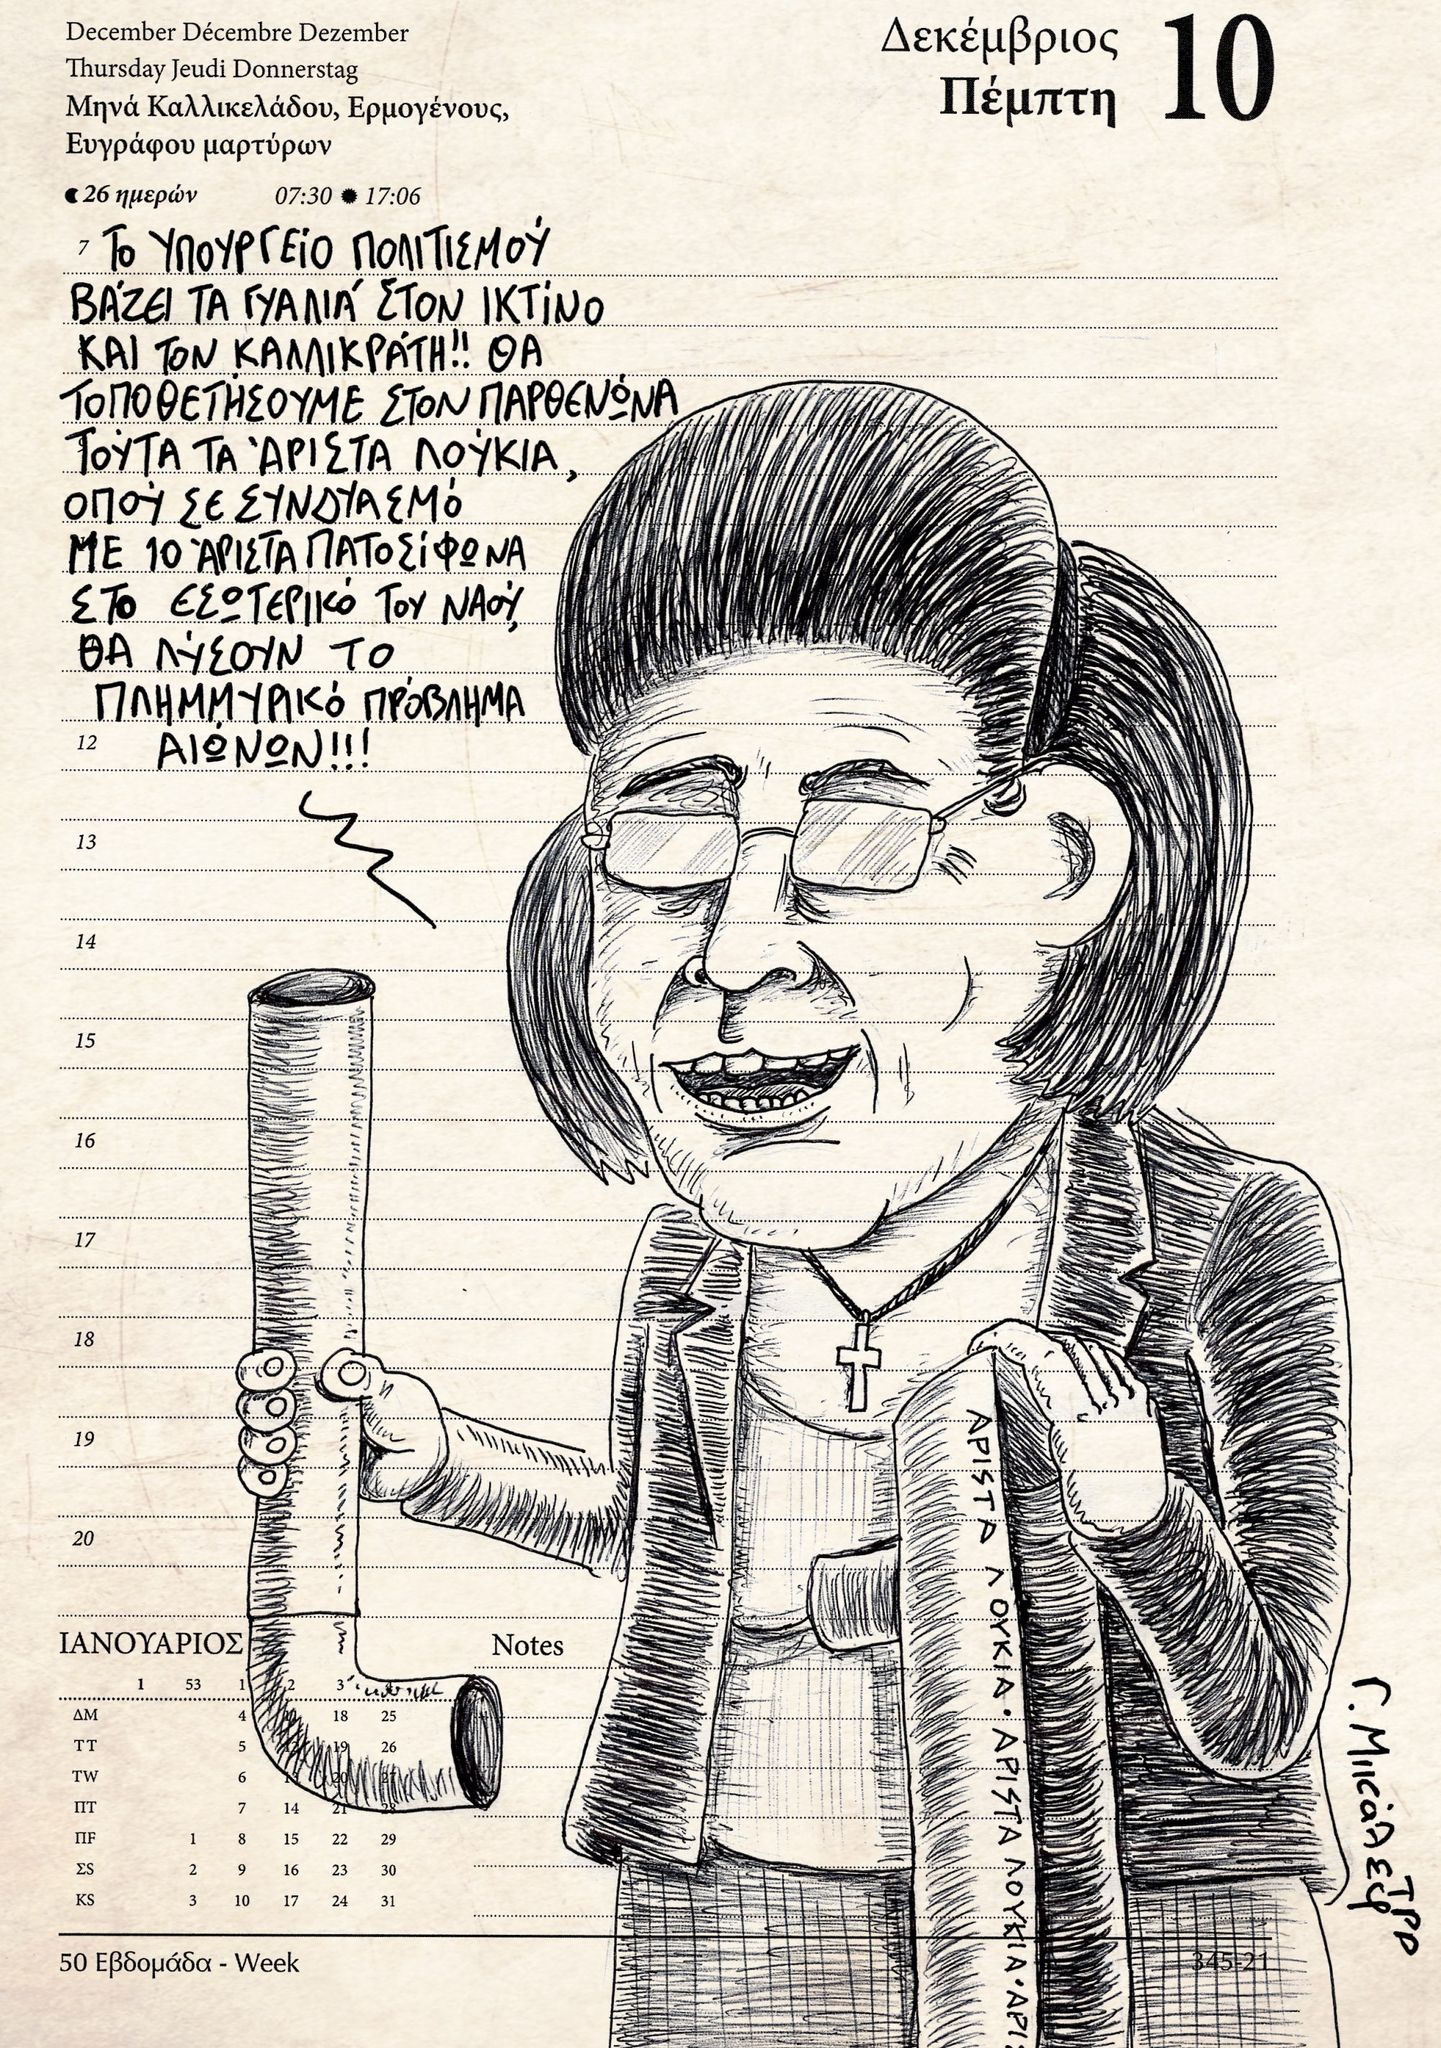 December Décembre Dezember
Thursday Jeudi Donnerstag
Μηνά Καλλικελάδου, Ερμογένους,
Ευγράφου μαρτύρων
26 ημερών 07:30 17:06
Δεκέμβριος
Πέμπτη
10
7 ΤΟ ΥΠΟΥΡΓΕΙΟ ΠΟΛΙΤΙΣΜΟΎ
ΒΆΖΕΙ ΤΑ ΓΥΑΛΙΆ ΣΤΟΝ ΙΚΤΊΝΟ
ΚΑΙ ΤΟΝ ΚΑΛΛΙΚΡΆΤΗ!! ΘΑ
ΤΟΠΟΘΕΤΉΣΟΥΜΕ ΣΤΟΝ ΠΑΡΘΕΝΏΝΑ
ΤΟΎΤΑ ΤΑ ΆΡΙΣΤΑ ΛΟΎΚΙΑ,
ΟΠΟΎ ΣΕ ΣΥΝΔΥΑΣΜΌ
ΜΕ 10 ΆΡΙΣΤΑ ΠΑΤΟΣΊΦΩΝΑ
ΣΤΟ ΕΣΩΤΕΡΙΚΌ ΤΟΥ ΝΑΟΎ,
ΘΑ ΛΎΣΟΥΝ ΤΟ
ΠΛΗΜΜΥΡΙΚΌ ΠΡΌΒΛΗΜΑ
12 ΑΙΏΝΩΝ!!!
13
14
15
16
17
18
19
20
ΑΡΙΣΤΑ ΛΟΥΚΙΑ • ΑΡΙΣΤΑ ΛΟΥΚΙΑ • ΑΡΙΣ
ΙΑΝΟΥΑΡΙΟΣ Notes
1 53 1 2 3
ΔΜ 4 18 25
ΤΤ 5 19 26
ΤW 6 20 27
ΠΤ 7 14 21 28
ΠF 1 8 15 22 29
ΣS 2 9 16 23 30
KS 3 10 17 24 31
50 Εβδομάδα - Week
345-21